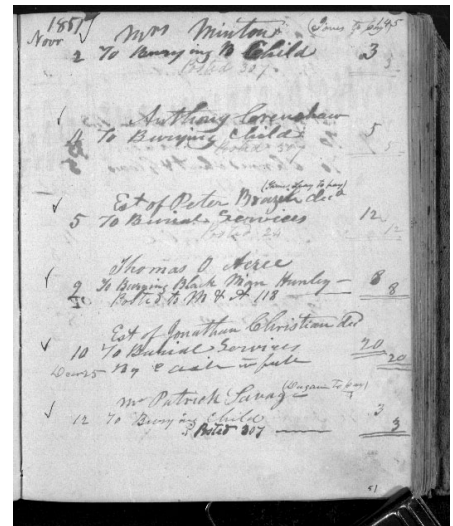 1857
Novr Mrs Minton (Jones to pay) 45
2 To Burying Child 3 3
Posted 327
Anthony Crenshaw
4 To Burying Child 5 5
Est of Peter Brazeil decd
5 To Burial Services 12 12
Posted
Thomas O. Acree
9 To Burying Black Man Hunley — 8 8
Posted to M & A 118
Est of Jonathan Christian decd
10 To Burial Services 20 20
Decr 25 By cash in full
Mr Patrick Savage (to pay)
12 To Burying Child 3 3
Posted 307
51